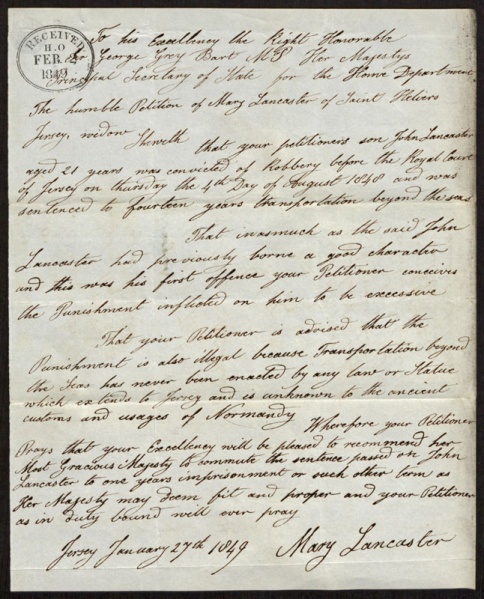 RECEIVED
H.O
FEB
1849
To his Excellency the Right Honorable
Sir George Grey Bart MP Her Majestys
Principal Secretary of State for the Home Department
The humble Petition of Mary Lancaster of Saint Heliers
Jersey, widow Sheweth
that your petitioners son John Lancaster
aged 21 years was convicted of Robbery before the Royal Court
of Jersey on thursday the 4th Day of August 1848 and was
sentenced to fourteen years transportation beyond the seas
That inasmuch as the said John
Lancaster had previously borne a good character
and this was his first offence your Petitioner conceives
the Punishment inflicted on him to be excessive
That your Petitioner is advised that the
Punishment is also illegal because Transportation beyond
the Seas has never been enacted by any law or Statue
which extends to Jersey and is unknown to the ancient
customs and usages of Normandy
Wherefore your Petitioner
Prays that your Excellency will be pleased to recommend her
Most Gracious Majesty to commute the sentence passed on John
Lancaster to one years imprisonment or such other term as
Her Majesty may deem fit and proper and your Petitioner
as in duty bound will ever pray
Jersey January 27th 1849 Mary Lancaster